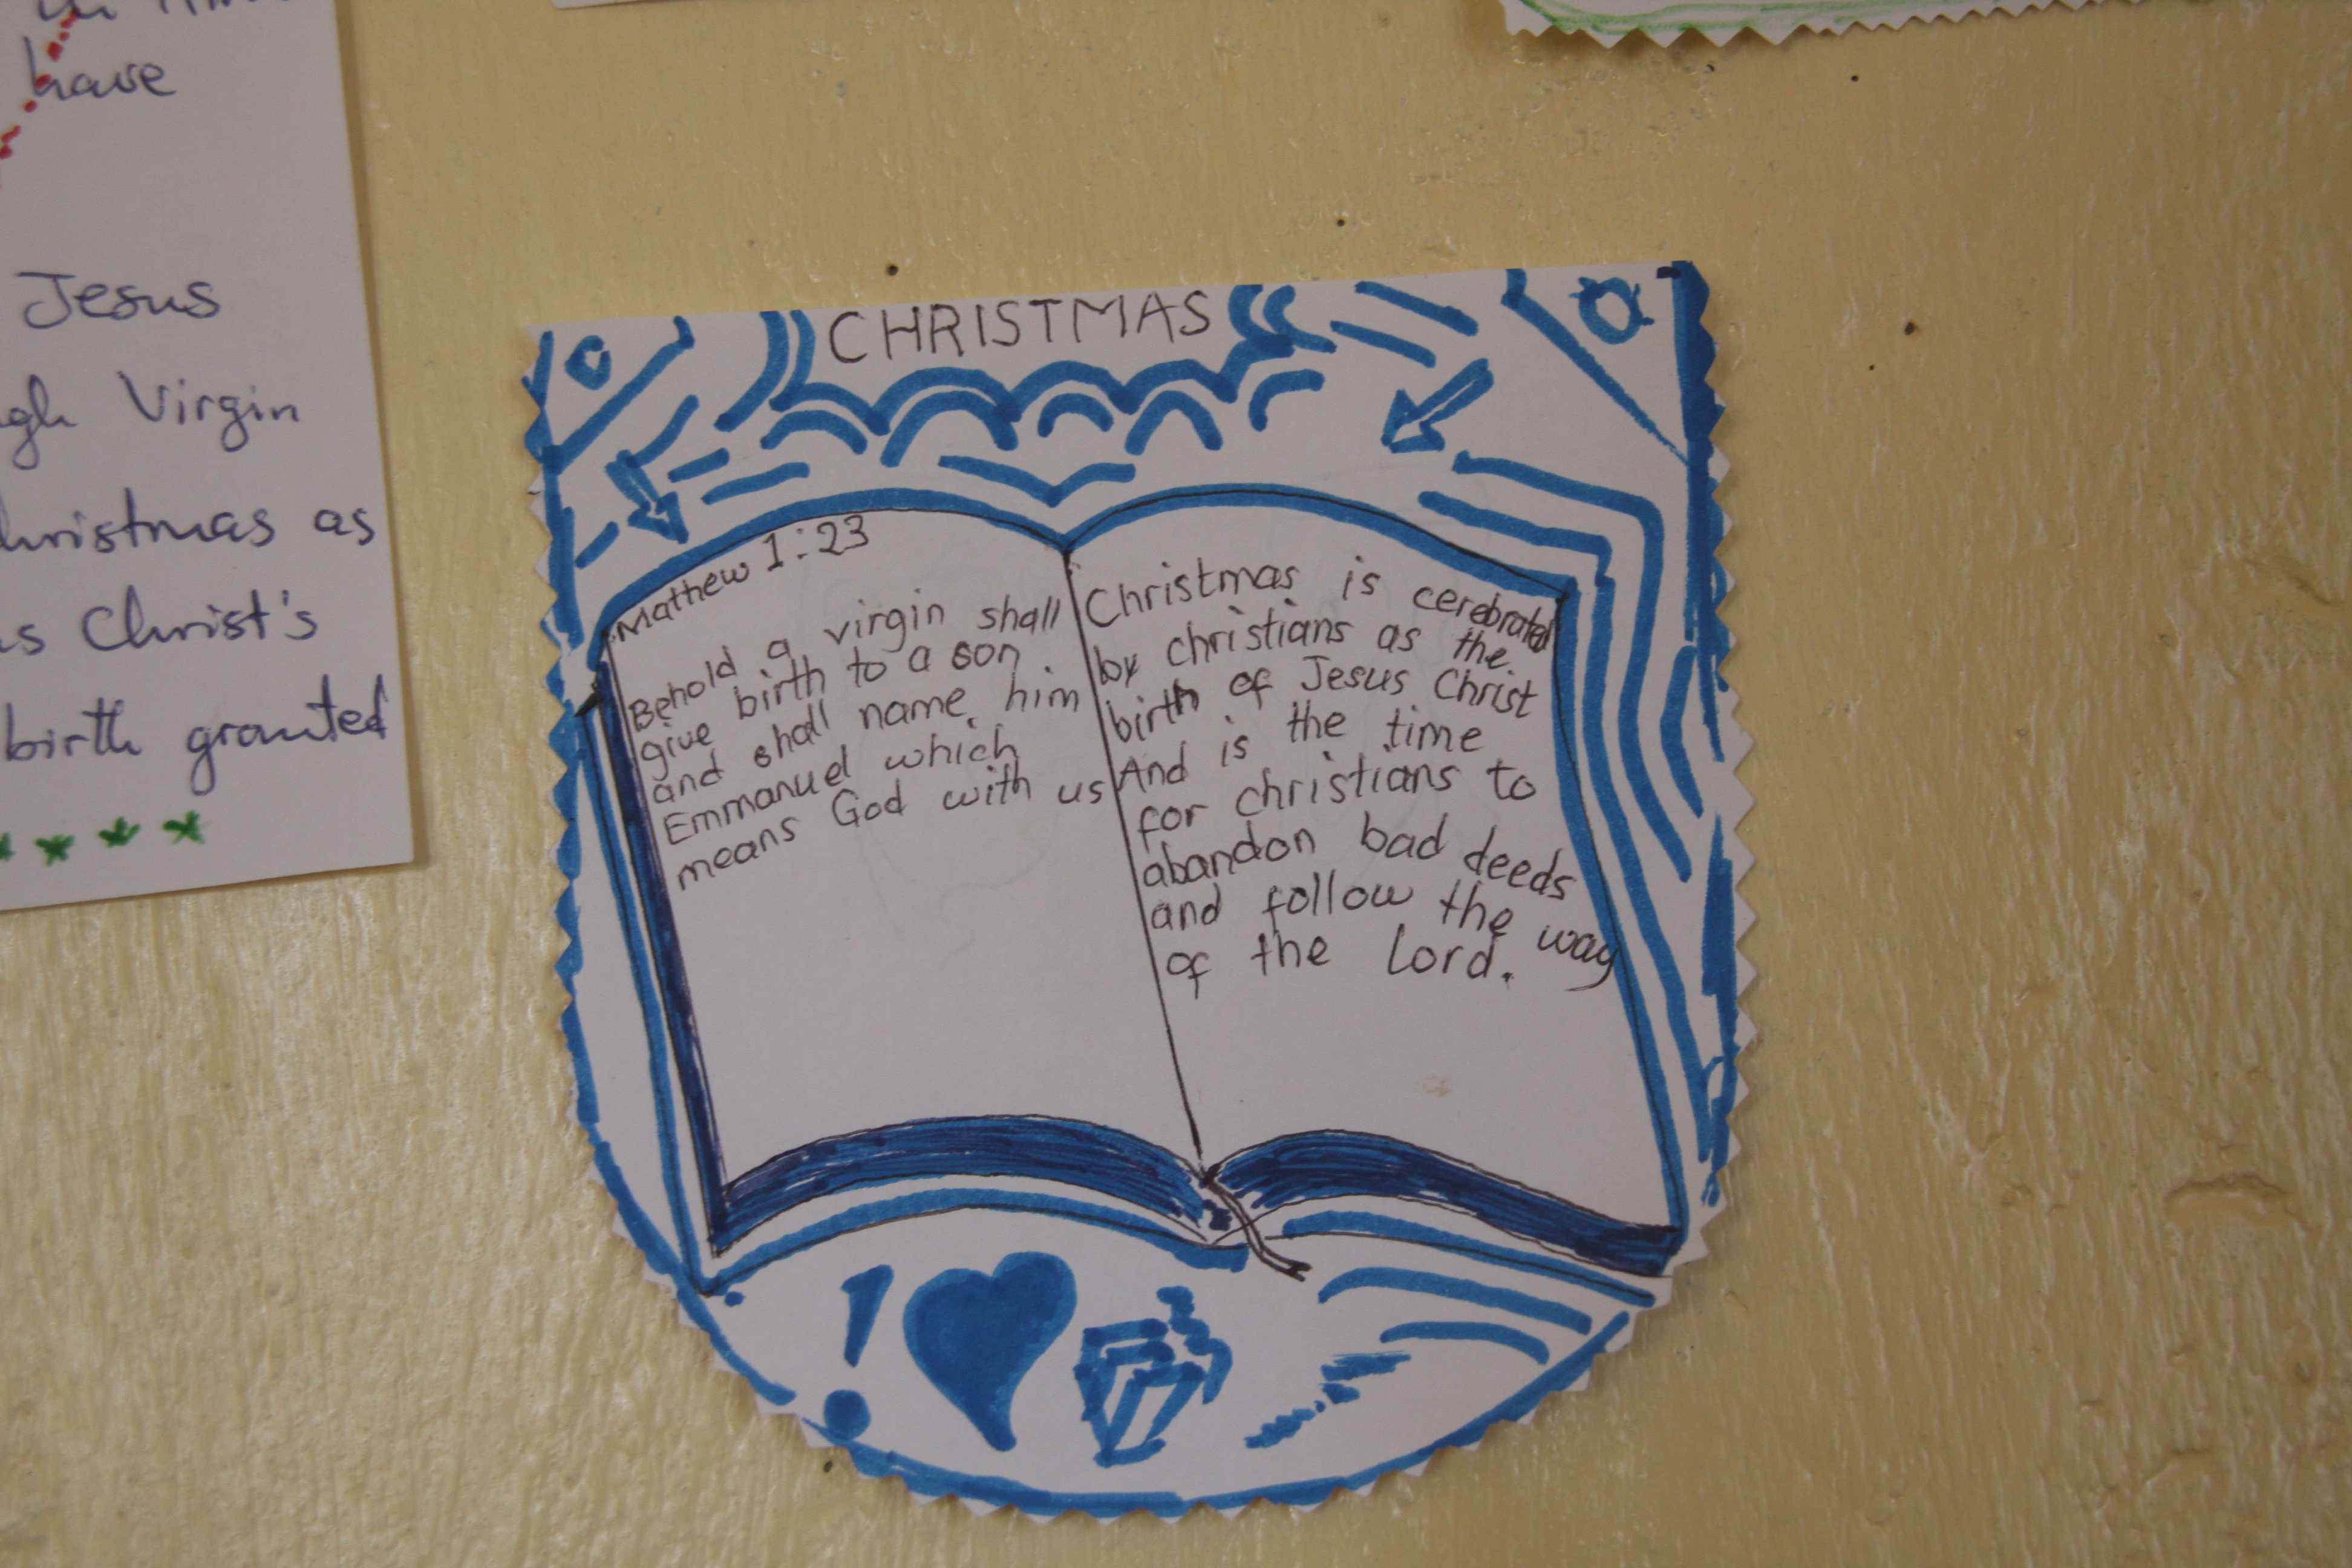 have
Jesus
Virgin
as
Christ's
birth granted
CHRISTMAS
Mathew 1:23
Behold a virgin shall
give birth to a son.
and shall name him
Emmanuel which
means God with us
Christmas is cerebrated
by christians as the
birth of Jesus Christ
And is the time
for christians to
abandon bad deeds
and follow the way
of the Lord.